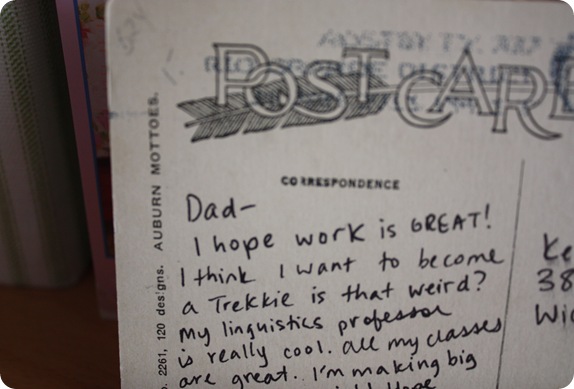 POST CARD
CORRESPONDENCE
2261, 120 designs. AUBURN MOTTOES.
Dad-
I hope work is GREAT!
I think I want to become
a Trekkie is that weird?
my linguistics professor
is really cool. all my classes
are great. I'm making big
Hope
Ke
38
Wic